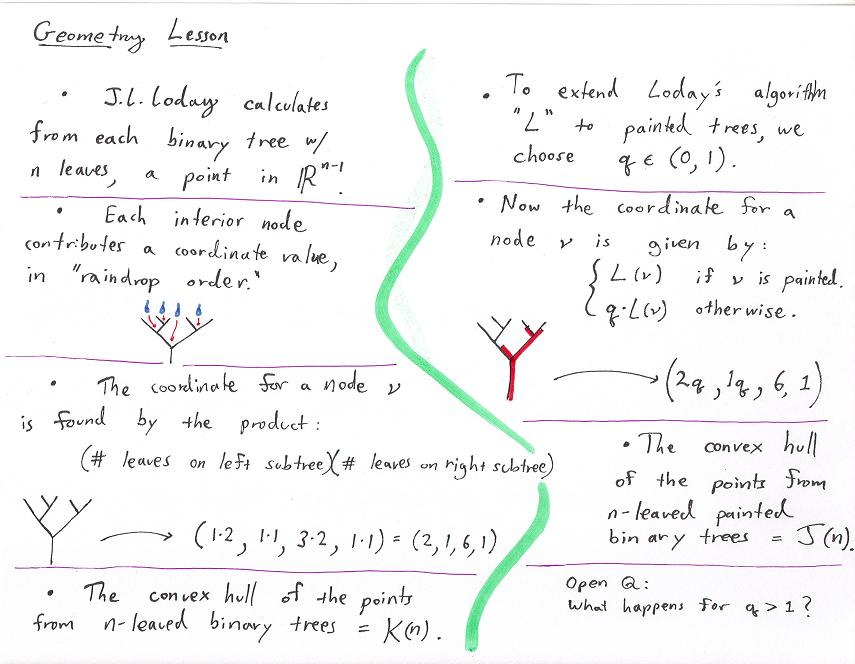 Geometry Lesson
• J.L. Loday calculates
from each binary tree w/
n leaves, a point in ℝⁿ⁻¹.
• Each interior node
contributes a coordinate value,
in "raindrop order."
• The coordinate for a node ν
is found by the product:
(# leaves on left subtree)(# leaves on right subtree)
(1·2, 1·1, 3·2, 1·1) = (2,1,6,1)
• The convex hull of the points
from n-leaved binary trees = K(n).
• To extend Loday's algorithm
"L" to painted trees, we
choose q ∈ (0,1).
• Now the coordinate for a
node ν is given by:
{ L(ν) if ν is painted.
q·L(ν) otherwise.
(2q, 1q, 6, 1)
• The convex hull
of the points from
n-leaved painted
binary trees = J(n).
Open Q:
What happens for q > 1?